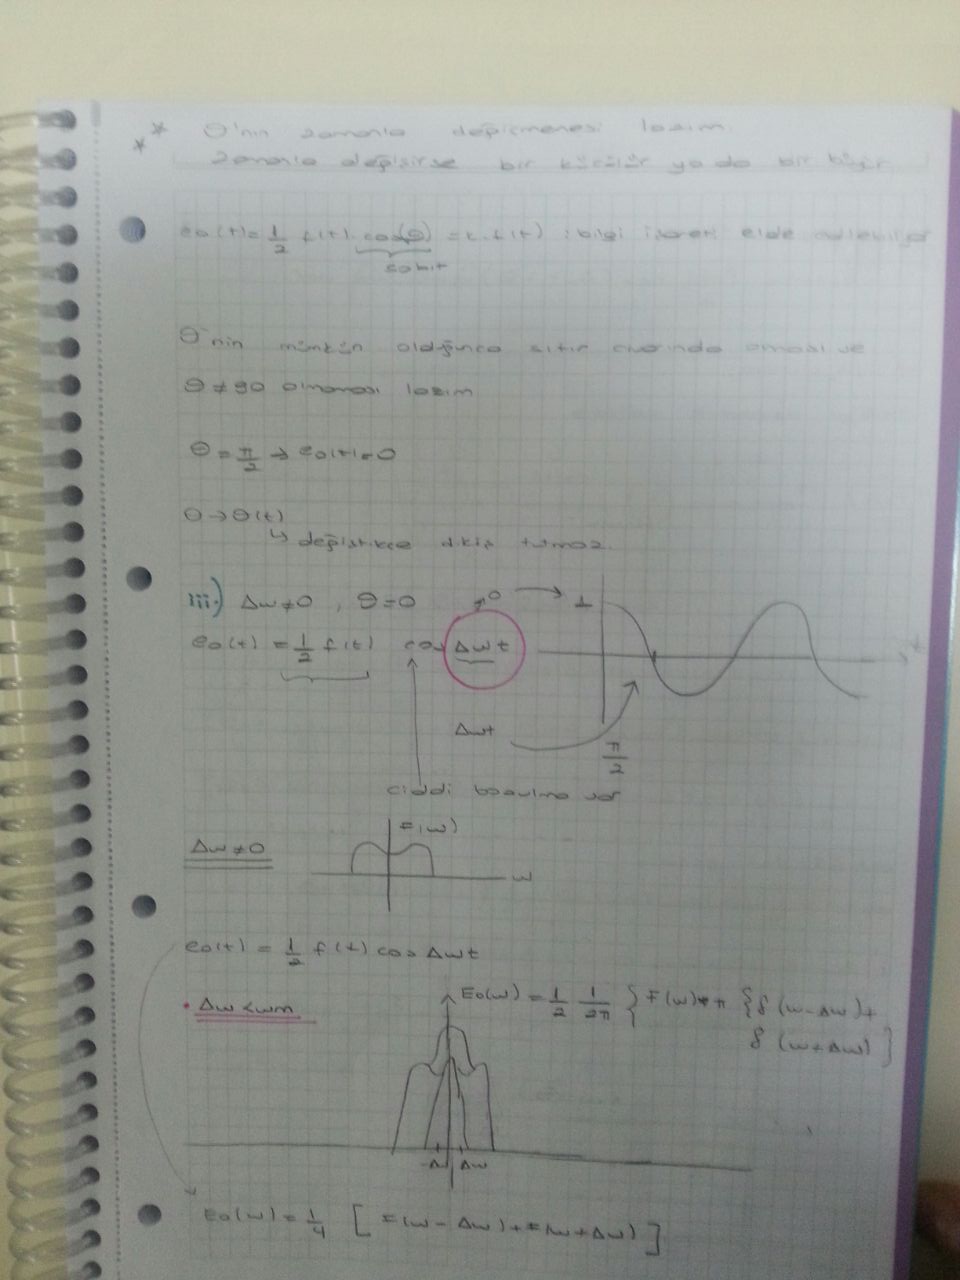 ** θ'nin zamanla değişmemesi lazım.
zamanla değişirse bir küçülür ya da bir büyür
eo(t) = 1/2 f(t) cos(θ) = k.f(t) : bilgi işareti elde edilebilir
sabit
θ'nin mümkün olduğunca sıfır civarında olması ve
θ ≠ 90 olmaması lazım
θ = π/2 → eo(t) = 0
θ → θ(t)
↳ değiştikçe dikiş tutmaz.
iii.) Δw ≠ 0 , θ = 0
0 → 1
eo(t) = 1/2 f(t) cos Δw t
t
Δwt
π/2
ciddi bozulma var
Δw ≠ 0
F(w)
w
eo(t) = 1/2 f(t) cos Δwt
• Δw < wm
Eo(w) = 1/2 1/2π { F(w) * π { δ (w - Δw) +
δ (w + Δw) ]
-Δ Δw
Eo(w) = 1/4 [ F(w - Δw) + F(w + Δw) ]